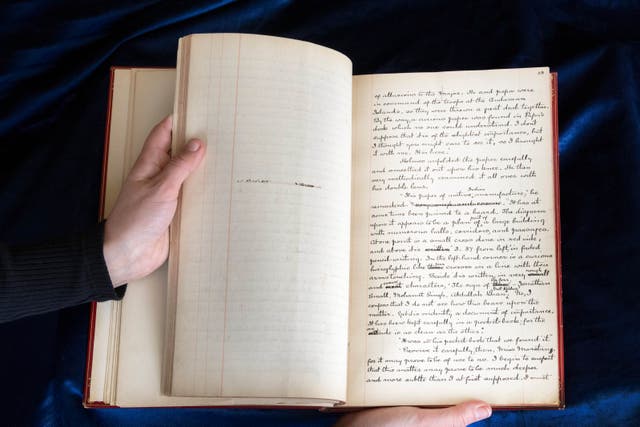 of allusions to the Major. He and papa were
in command of the troops at the Andaman
Islands, so they were thrown a great deal together.
By the way, a curious paper was found in Papa's
desk which no one could understand. I don't
suppose that it is of the slightest importance, but
I thought you might care to see it, so I brought
it with me. It is here."
Holmes unfolded the paper carefully
and smoothed it out upon his knee. He then
very methodically examined it all over with
his double lens.
"This paper is of native Indian manufacture," he
remarked. "It has at
some time been pinned to a board. The diagram
upon it appears to be a plan of part of a large building
with numerous halls, corridors, and passages.
At one point is a small cross done in red ink,
and above it is written '3.37 from left' in faded
pencil-writing. In the left hand corner is a curious
hieroglyphic like four crosses in a line with their
arms touching. Beside it is written, in very rough
and coarse characters, 'The sign of the four, Jonathan
Small, Mahomet Singh, Abdullah Khan, Dost Akbar.' No, I
confess that I do not see how this bears upon the
matter. Yet it is evidently a document of importance.
It has been kept carefully in a pocket book; for the
one side is as clean as the other."
"It was in his pocket book that we found it."
"Preserve it carefully, then, Miss Morstan,
for it may prove to be of use to us. I begin to suspect
that this matter may prove to be much deeper
and more subtle than I at first supposed. I must